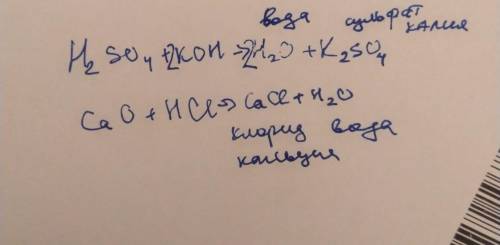 вода сульфат
калия
H₂SO₄+2KOH→2H₂O+K₂SO₄
CaO+HCl→CaCl+H₂O
хлорид вода
кальция